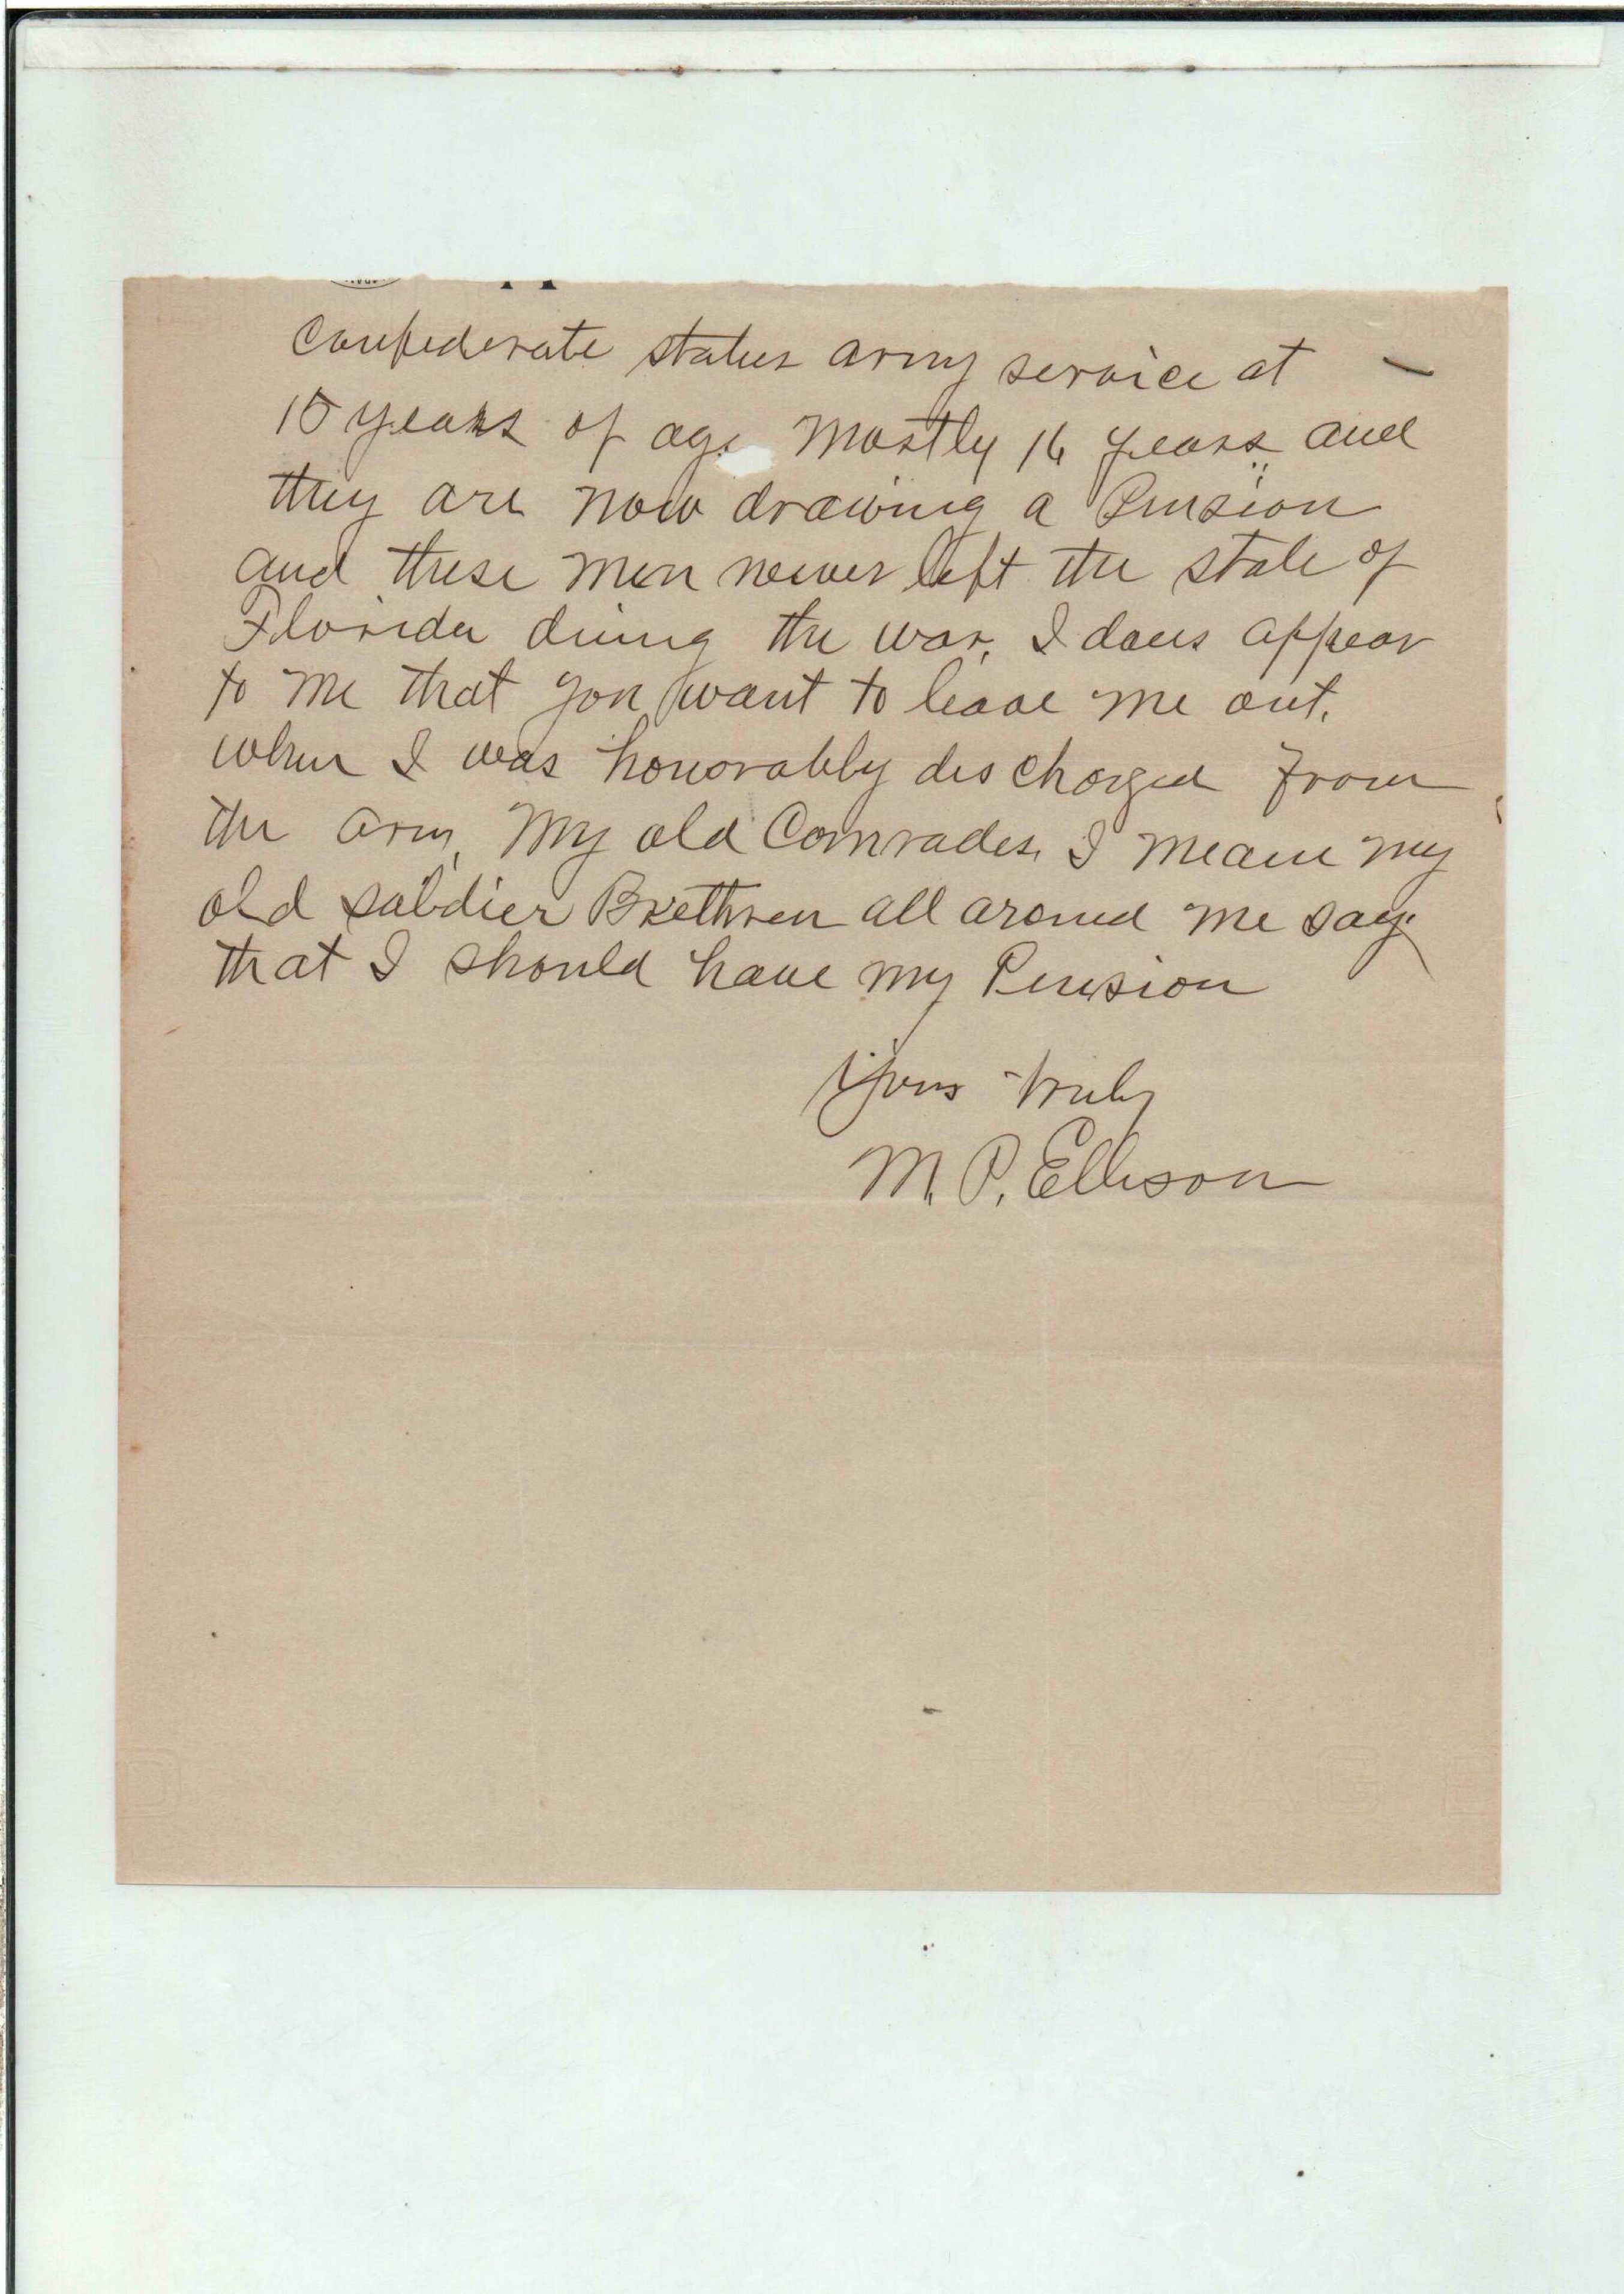 Confederate states army service at
15 years of age Mostly 16 years and
they are now drawing a Pension
and these men never left the state of
Florida duing the war. I does appear
to me that you want to leave me out.
when I was honorably discharged from
the army My old Comrades. I meane my
old soldier Brethren all around me say
that I should have my Pension
Yours truly
M. P. Ellison